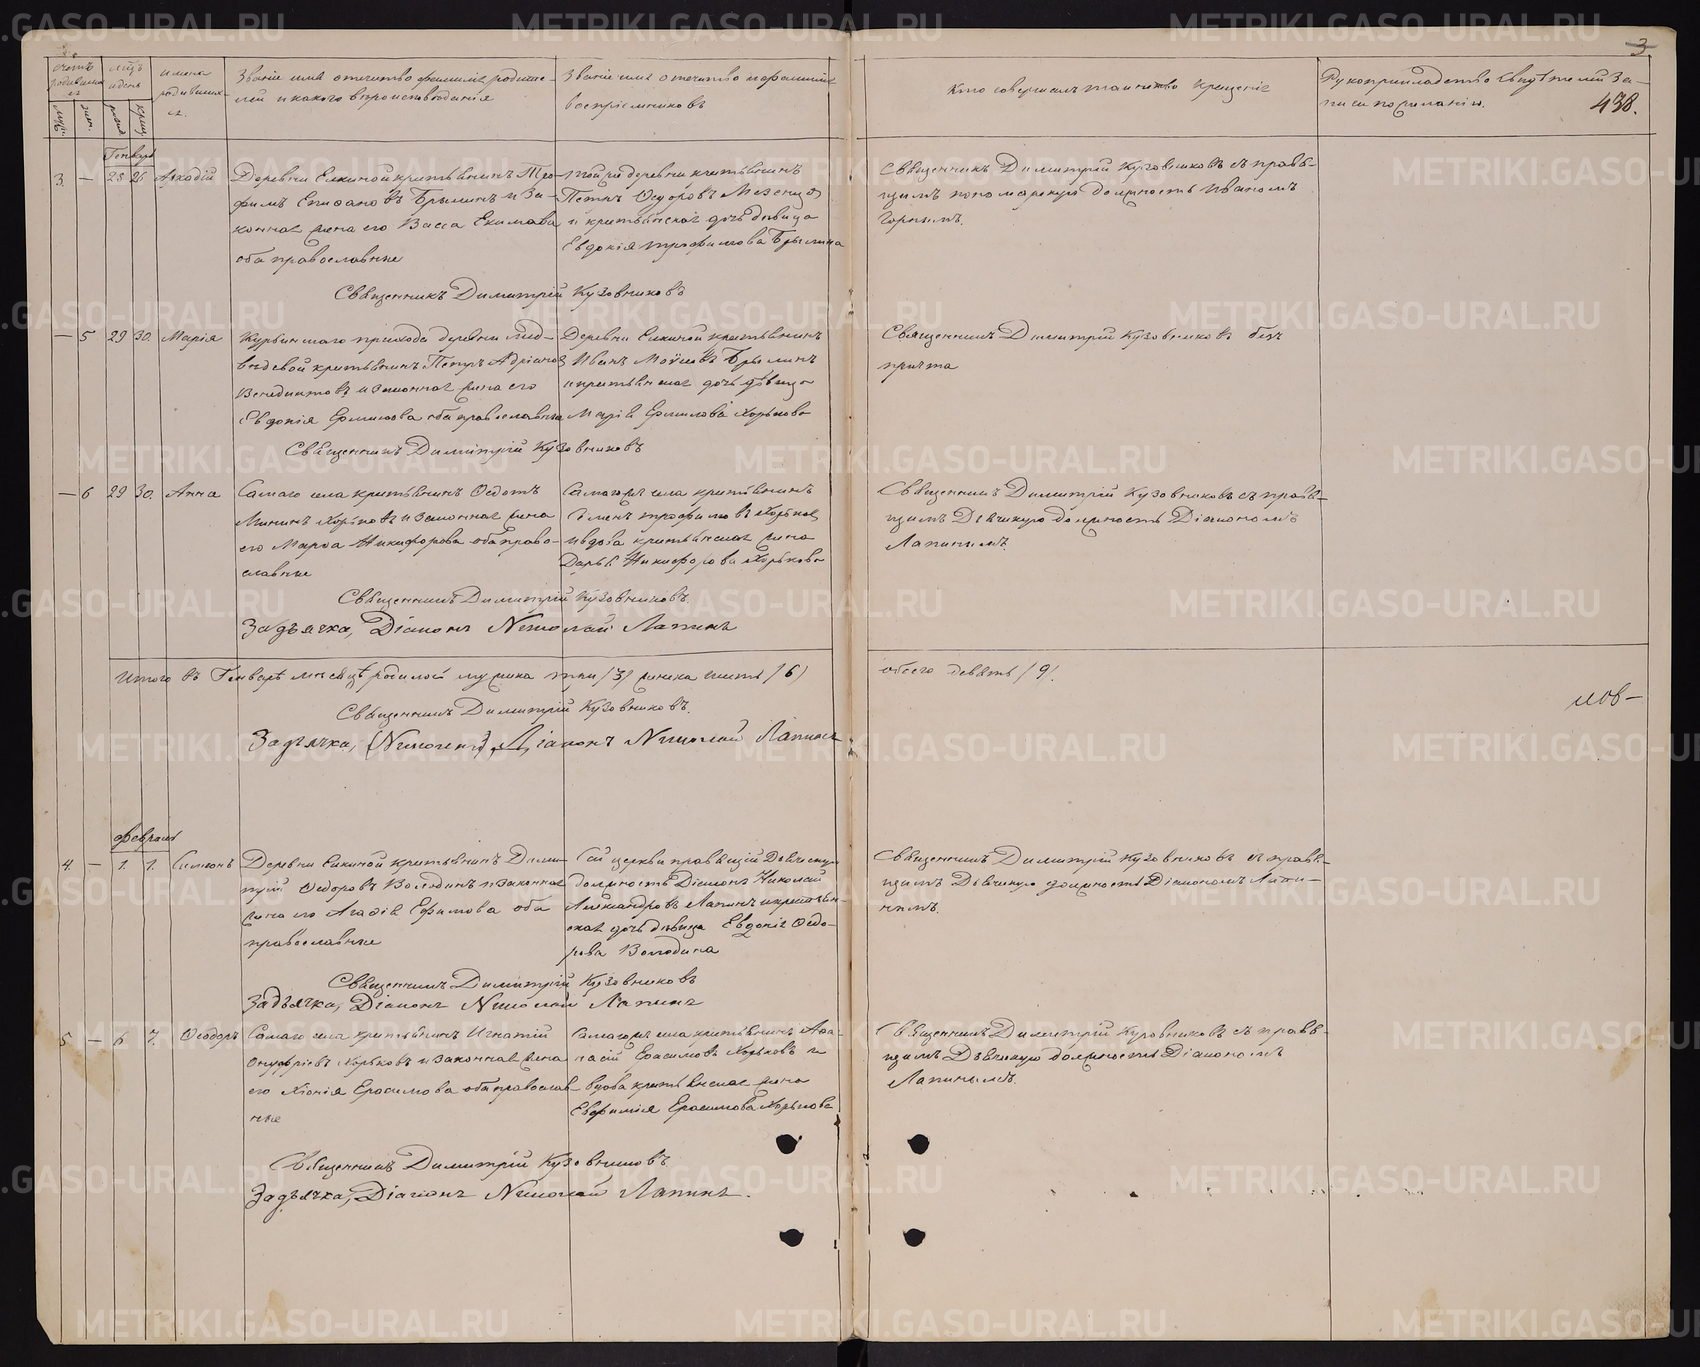 METRIKI.GASO-URAL.RU
3
438.
Счетъ родившихся
Мѣсяцъ и день
Имена родившихся.
Званіе имя отечество фамилія родите-
лей и какого вѣроисповѣданія
Званіе имя отечество и фамилія
воспріемниковъ
Кто совершалъ таинство крещенія
Рукоприкладство свидѣтелей за-
писи по желанію.
муж.
жен.
рожд.
крещ.
Генварь
3. — 25 26 Аркадій
Деревни Елкиной крестьянинъ Тро-
фимъ Епифановъ Брылинъ и за-
конная жена его Васса Екимова
оба православные
Той же деревни крестьянинъ
Петръ Ѳедоровъ
и крестьянская дочь дѣвица
Евдокія Трофимова Брылина
Священникъ Димитрій Кузовниковъ съ правя-
щимъ пономарскую должность Иваномъ
Священникъ Димитрій Кузовниковъ
— 5 29 30. Марія
прихода деревни Мед-
вѣдевой крестьянинъ Петръ Адріановъ
Венедиктовъ и законная жена его
Евдокія Ермилова оба православные
Деревни Елкиной крестьянинъ
Иванъ Брылинъ
и крестьянская дочь дѣвица
Марія Ермилова Хорькова
Священникъ Димитрій Кузовниковъ безъ
причта
Священникъ Димитрій Кузовниковъ
— 6 29 30. Анна
Самаго села крестьянинъ Ѳедотъ
Мининъ Хорьковъ и законная жена
его Марѳа Никифорова оба право-
славные
Самагожъ села крестьянинъ
Трофимовъ Хорьковъ
и вдова крестьянская жена
Дарья Никифорова Хорькова
Священникъ Димитрій Кузовниковъ съ правя-
щимъ Дьячкую должность Діакономъ
Лапинымъ.
Священникъ Димитрій Кузовниковъ.
За дьячка, Діаконъ Николай Лапинъ
Итого въ Генварѣ мѣсяцѣ родилось мужска три /3/ женска шесть /6/
обоего девять /9/.
Священникъ Димитрій Кузовниковъ.
За дьячка, Діаконъ Николай Лапинъ
Февраль
4. — 1. 1. Симеонъ
Деревни Елкиной крестьянинъ Дими-
трій Ѳедоровъ Володинъ и законная
жена его Агафія Ефимова оба
православные
Сей церкви правящій Дьячкую
должность Діаконъ Николай
Александровъ Лапинъ и крестьян-
ская дочь дѣвица Евдокія Ѳедо-
рова Володина
Священникъ Димитрій Кузовниковъ съ правя-
щимъ Дьячкую должность Діакономъ Лапи-
нымъ.
Священникъ Димитрій Кузовниковъ
За дьячка, Діаконъ Николай Лапинъ
5. — 6 7. Ѳеодоръ
Самаго села крестьянинъ Игнатій
Онуфріевъ Хорьковъ и законная жена
его Хіонія Ерасимова оба православ-
ные
Самагожъ села крестьянинъ Аѳа-
насій Ерасимовъ Хорьковъ и
вдова крестьянская жена
Евфимія Ерасимова Хорькова
Священникъ Димитрій Кузовниковъ съ правя-
щимъ Дьячкую должность Діакономъ
Лапинымъ.
Священникъ Димитрій Кузовниковъ
За дьячка, Діаконъ Николай Лапинъ.